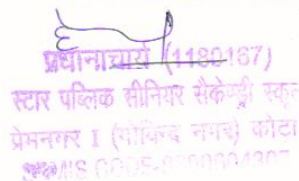 प्रधानाचार्य (1180167)
स्टार पब्लिक सीनियर सैकेण्ड्री स्कूल
प्रेमनगर I (गोविन्द नगर) कोटा